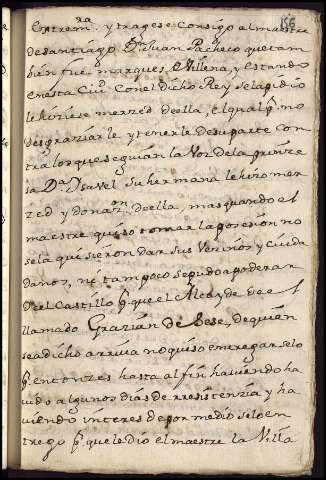 156
Extrem.ra y tragese consigo al maestre
de santiago Dn Juan Pacheco que tam
bien fue marques, Villena, y estando
en esta Ciud. Con el dicho Rey se la pidio
le hiciese merzed de ella, el qual pr. no
desgraziarle y tenerle de su parte con
tra los que seguian la Voz de la prinze
sa Da Ysavel Su hermana le hizo mer
zed y donazon de ella, mas quando el
maestre quiso tomar la posesion no
se la quisieron dar sus Vecinos y Ciuda
danos, ni tampoco se pudo apoderar
Del Castillo pr. que el Alcayde de el
llamado Grazian de Sese, de quien
se a dicho arriva no quiso entregarselo
pr. entonzes hasta al fin haviendo ha
vido algunos dias de rresistenzia y ha
viendo interes de por medio se lo en
trego pr. que le dio el maestre la Villa